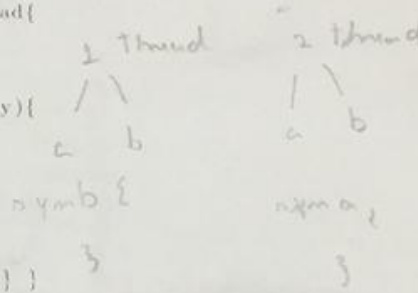 ad{
1 thread 2 thread
y){
a b a b
symb {
}
} } }